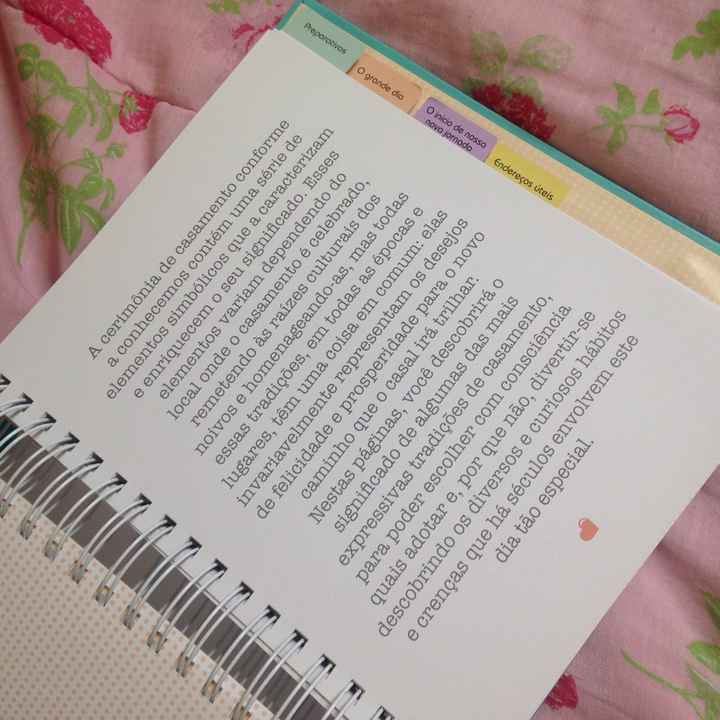 Preparativos
O grande dia
O início de nossa
nova jornada
Endereços úteis
A cerimônia de casamento conforme
a conhecemos contém uma série de
elementos simbólicos que a caracterizam
e enriquecem o seu significado. Esses
elementos variam dependendo do
local onde o casamento é celebrado,
remetendo às raízes culturais dos
noivos e homenageando-as, mas todas
essas tradições, em todas as épocas e
lugares, têm uma coisa em comum: elas
invariavelmente representam os desejos
de felicidade e prosperidade para o novo
caminho que o casal irá trilhar.
Nestas páginas, você descobrirá o
significado de algumas das mais
expressivas tradições de casamento,
para poder escolher com consciência
quais adotar e, por que não, divertir-se
descobrindo os diversos e curiosos hábitos
e crenças que há séculos envolvem este
dia tão especial.